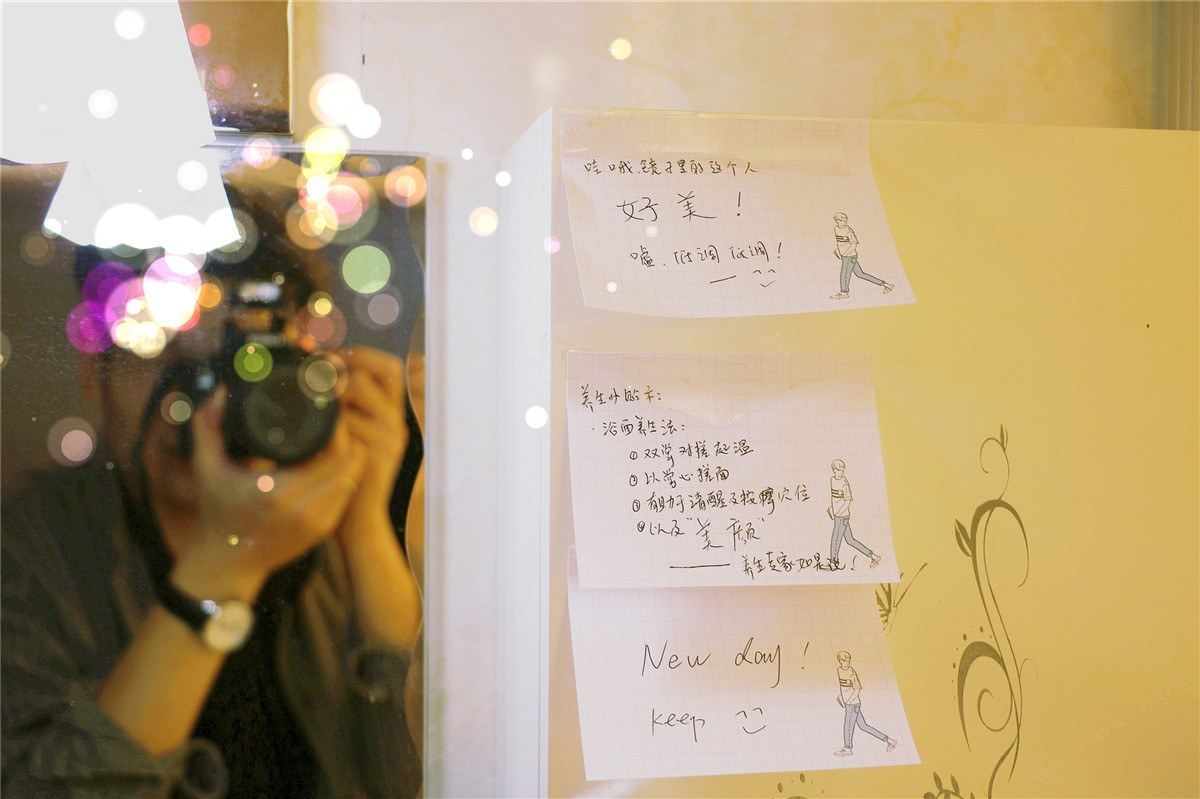 哇哦,镜子里的这个人
好美!
嘘、低调低调!
—
养生小贴士:
·浴面养生法:
①双掌对搓起温
②以掌心搓面
③有助于清醒及按摩穴位
④以及"美颜"
——养生专家如是说!
New day!
keep